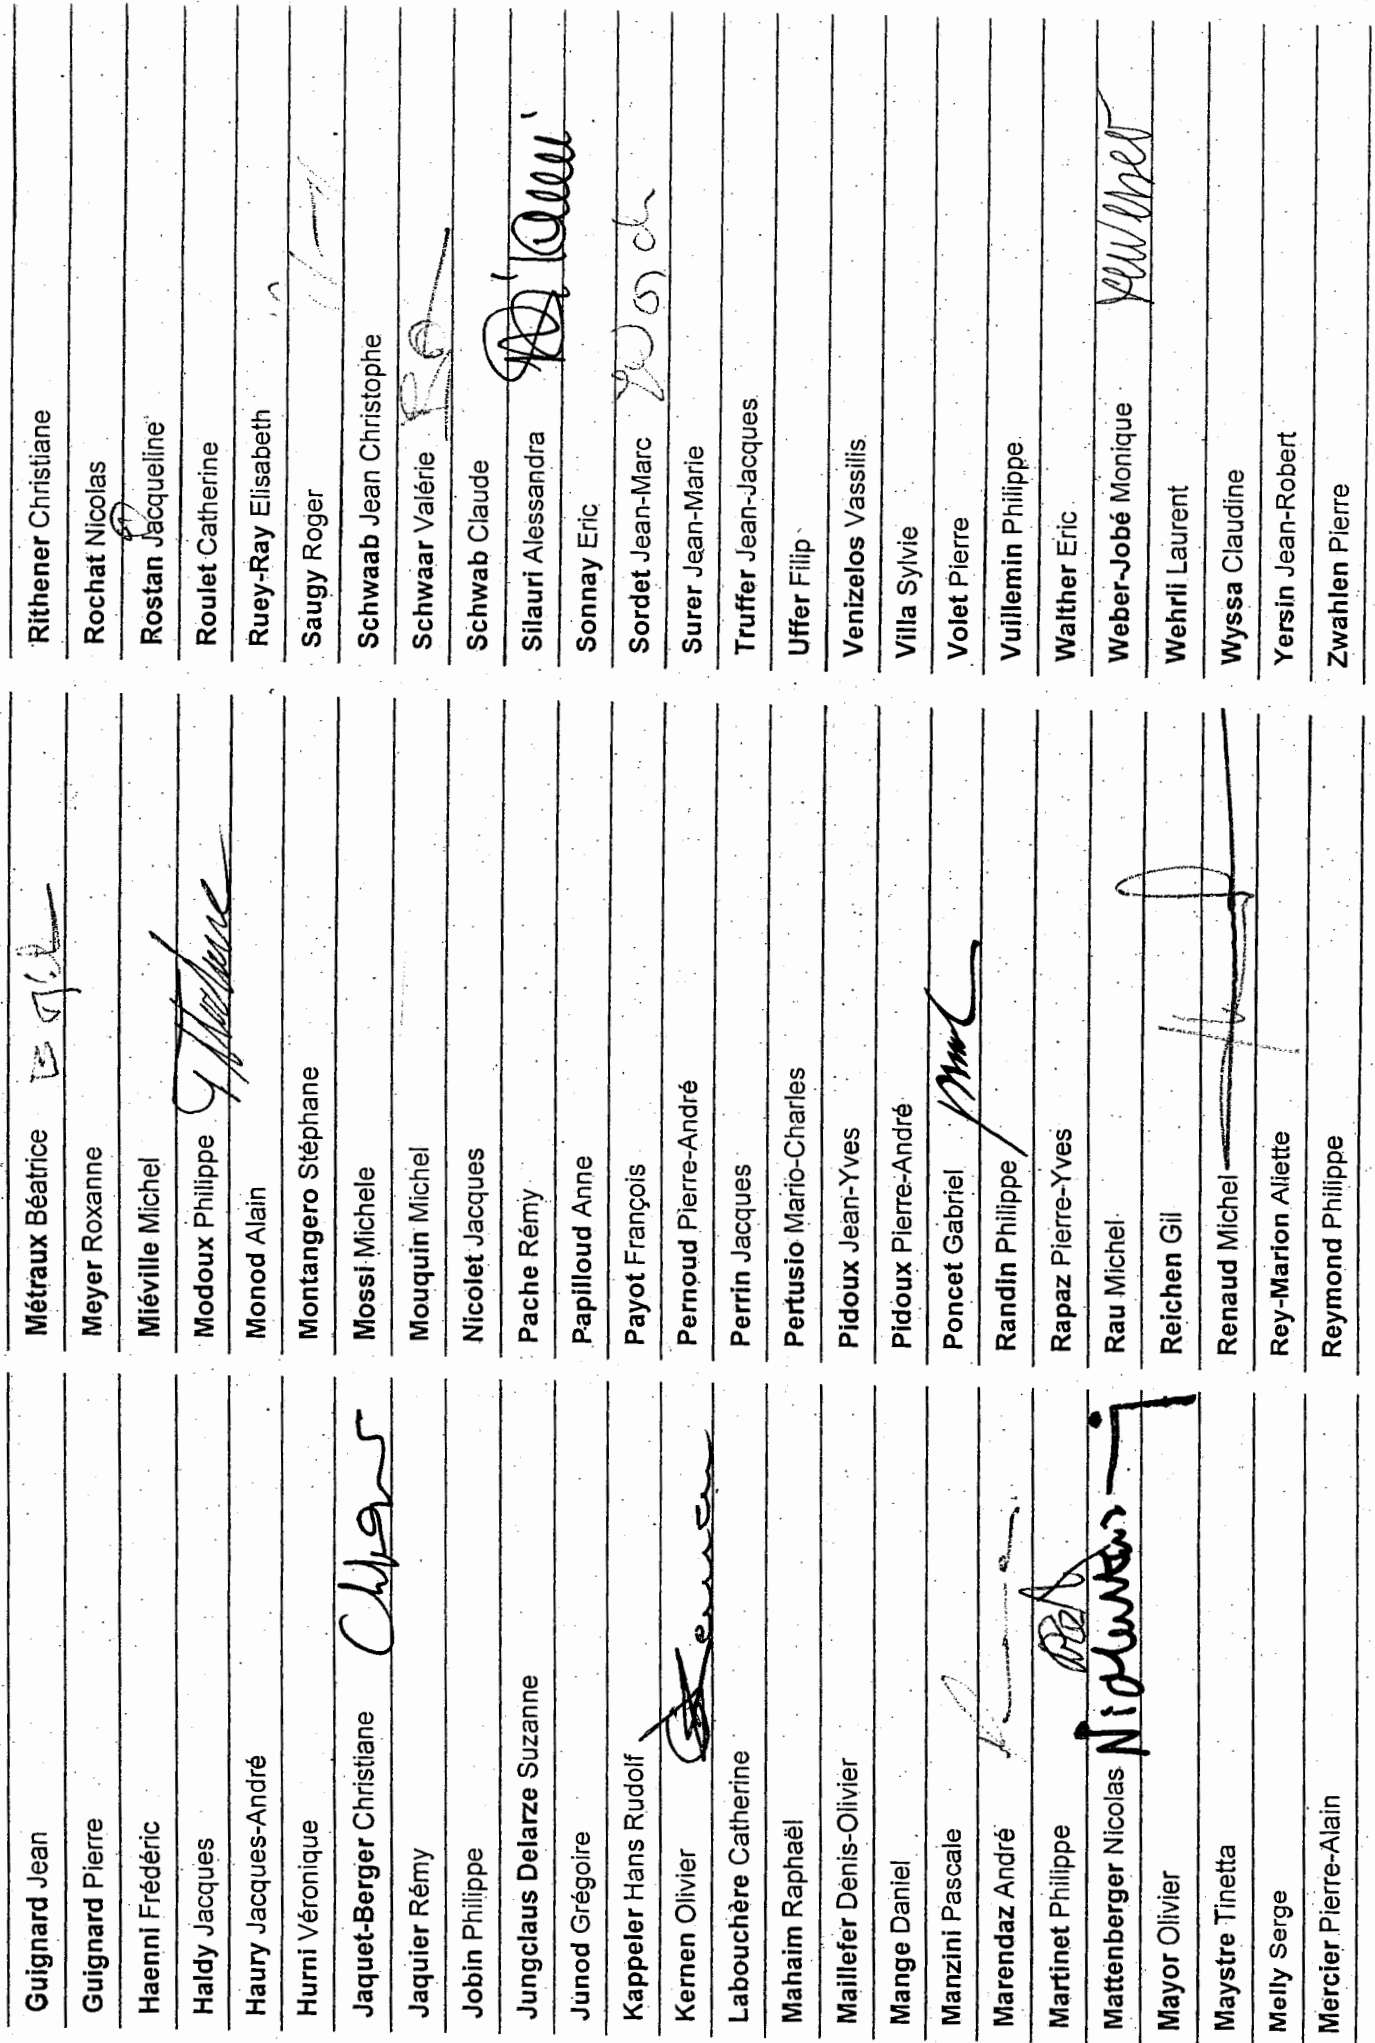 Guignard Jean
Guignard Pierre
Haenni Frédéric
Haldy Jacques
Haury Jacques-André
Hurni Véronique
Jaquet-Berger Christiane
Jaquier Rémy
Jobin Philippe
Jungclaus Delarze Suzanne
Junod Grégoire
Kappeler Hans Rudolf
Kernen Olivier
Labouchère Catherine
Mahaim Raphaël
Maillefer Denis-Olivier
Mange Daniel
Manzini Pascale
Marendaz André
Martinet Philippe
Mattenberger Nicolas
Mayor Olivier
Maystre Tinetta
Melly Serge
Mercier Pierre-Alain
Métraux Béatrice
Meyer Roxanne
Miéville Michel
Modoux Philippe
Monod Alain
Montangero Stéphane
Mossi Michele
Mouquin Michel
Nicolet Jacques
Pache Rémy
Papilloud Anne
Payot François
Pernoud Pierre-André
Perrin Jacques
Pertusio Mario-Charles
Pidoux Jean-Yves
Pidoux Pierre-André
Poncet Gabriel
Randin Philippe
Rapaz Pierre-Yves
Rau Michel
Reichen Gil
Renaud Michel
Rey-Marion Aliette
Reymond Philippe
Rithener Christiane
Rochat Nicolas
Rostan Jacqueline
Roulet Catherine
Ruey-Ray Elisabeth
Saugy Roger
Schwaab Jean Christophe
Schwaar Valérie
Schwab Claude
Silauri Alessandra
Sonnay Eric
Sordet Jean-Marc
Surer Jean-Marie
Truffer Jean-Jacques
Uffer Filip
Venizelos Vassilis
Villa Sylvie
Volet Pierre
Vuillemin Philippe
Walther Eric
Weber-Jobé Monique
Wehrli Laurent
Wyssa Claudine
Yersin Jean-Robert
Zwahlen Pierre